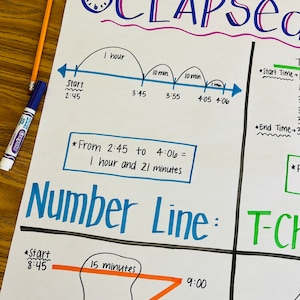 ELAPSED
1 hour
10 min
10 min
1 min
Start
2:45
3:45
3:55
4:05
4:06
*From 2:45 to 4:06=
1 hour and 21 minutes
Number Line:
*Start Time
*End Time
T-Ch
*Start
8:45
15 minutes
9:00
Crayola